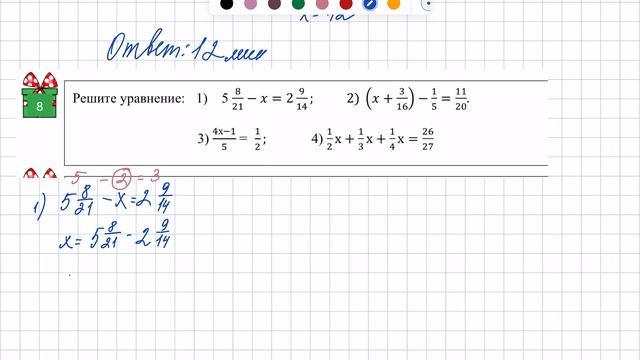 x=12
Ответ: 12 мин
8
Решите уравнение: 1) 5 8/21 − x = 2 9/14; 2) (x + 3/16) − 1/5 = 11/20.
3) (4x−1)/5 = 1/2; 4) 1/2x + 1/3x + 1/4x = 26/27
5 − 2 = 3
1) 5 8/21 − x = 2 9/14
x = 5 8/21 − 2 9/14